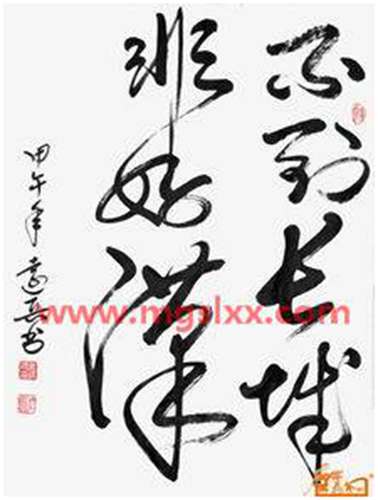 不到长城
非好汉
甲午年
www.mgslxx.com